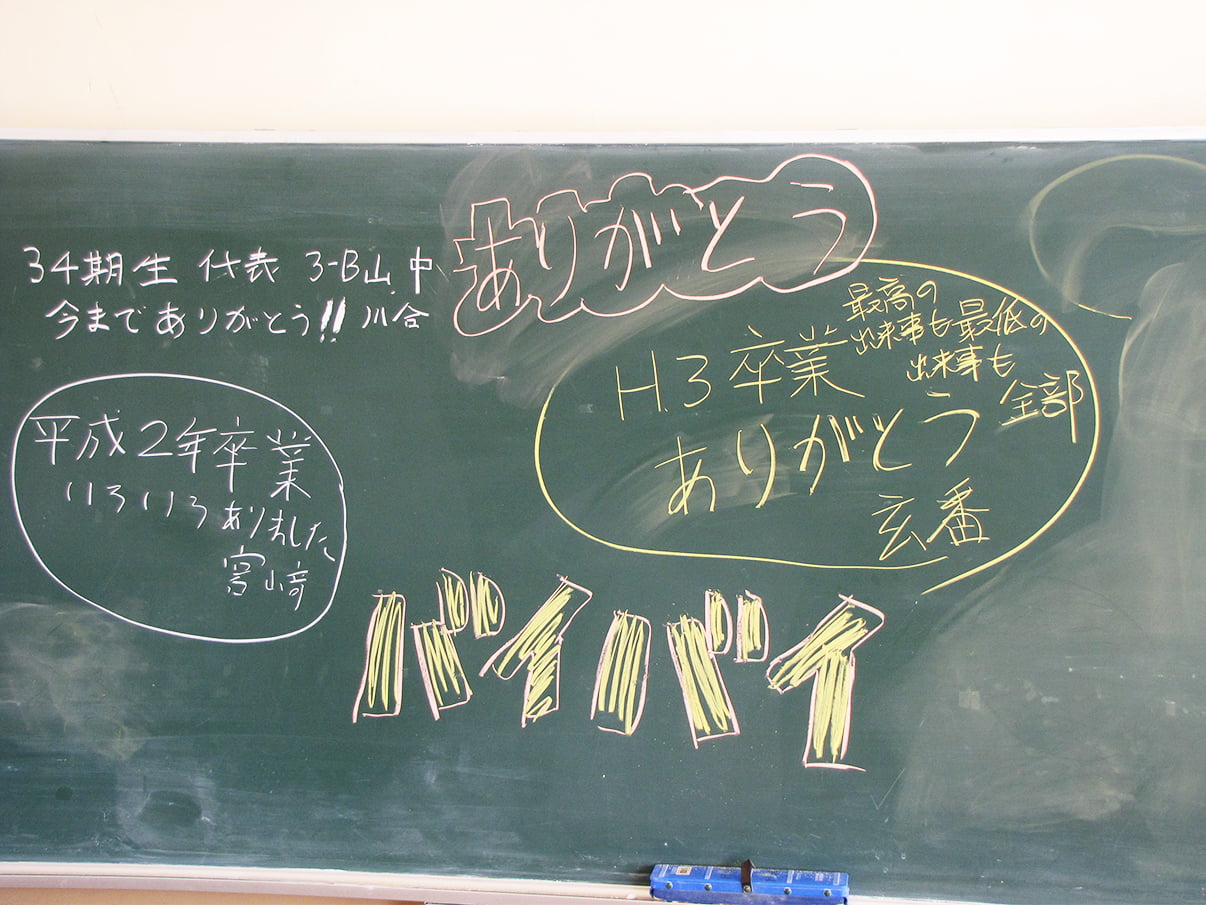 ありがとう
34期生 代表 3-B山中
今までありがとう!! 川合
平成2年卒業
いろいろありました
宮崎
H.3 卒業
最高の
出来事も最低の
出来事も
全部
ありがとう
玄番
バイバイ